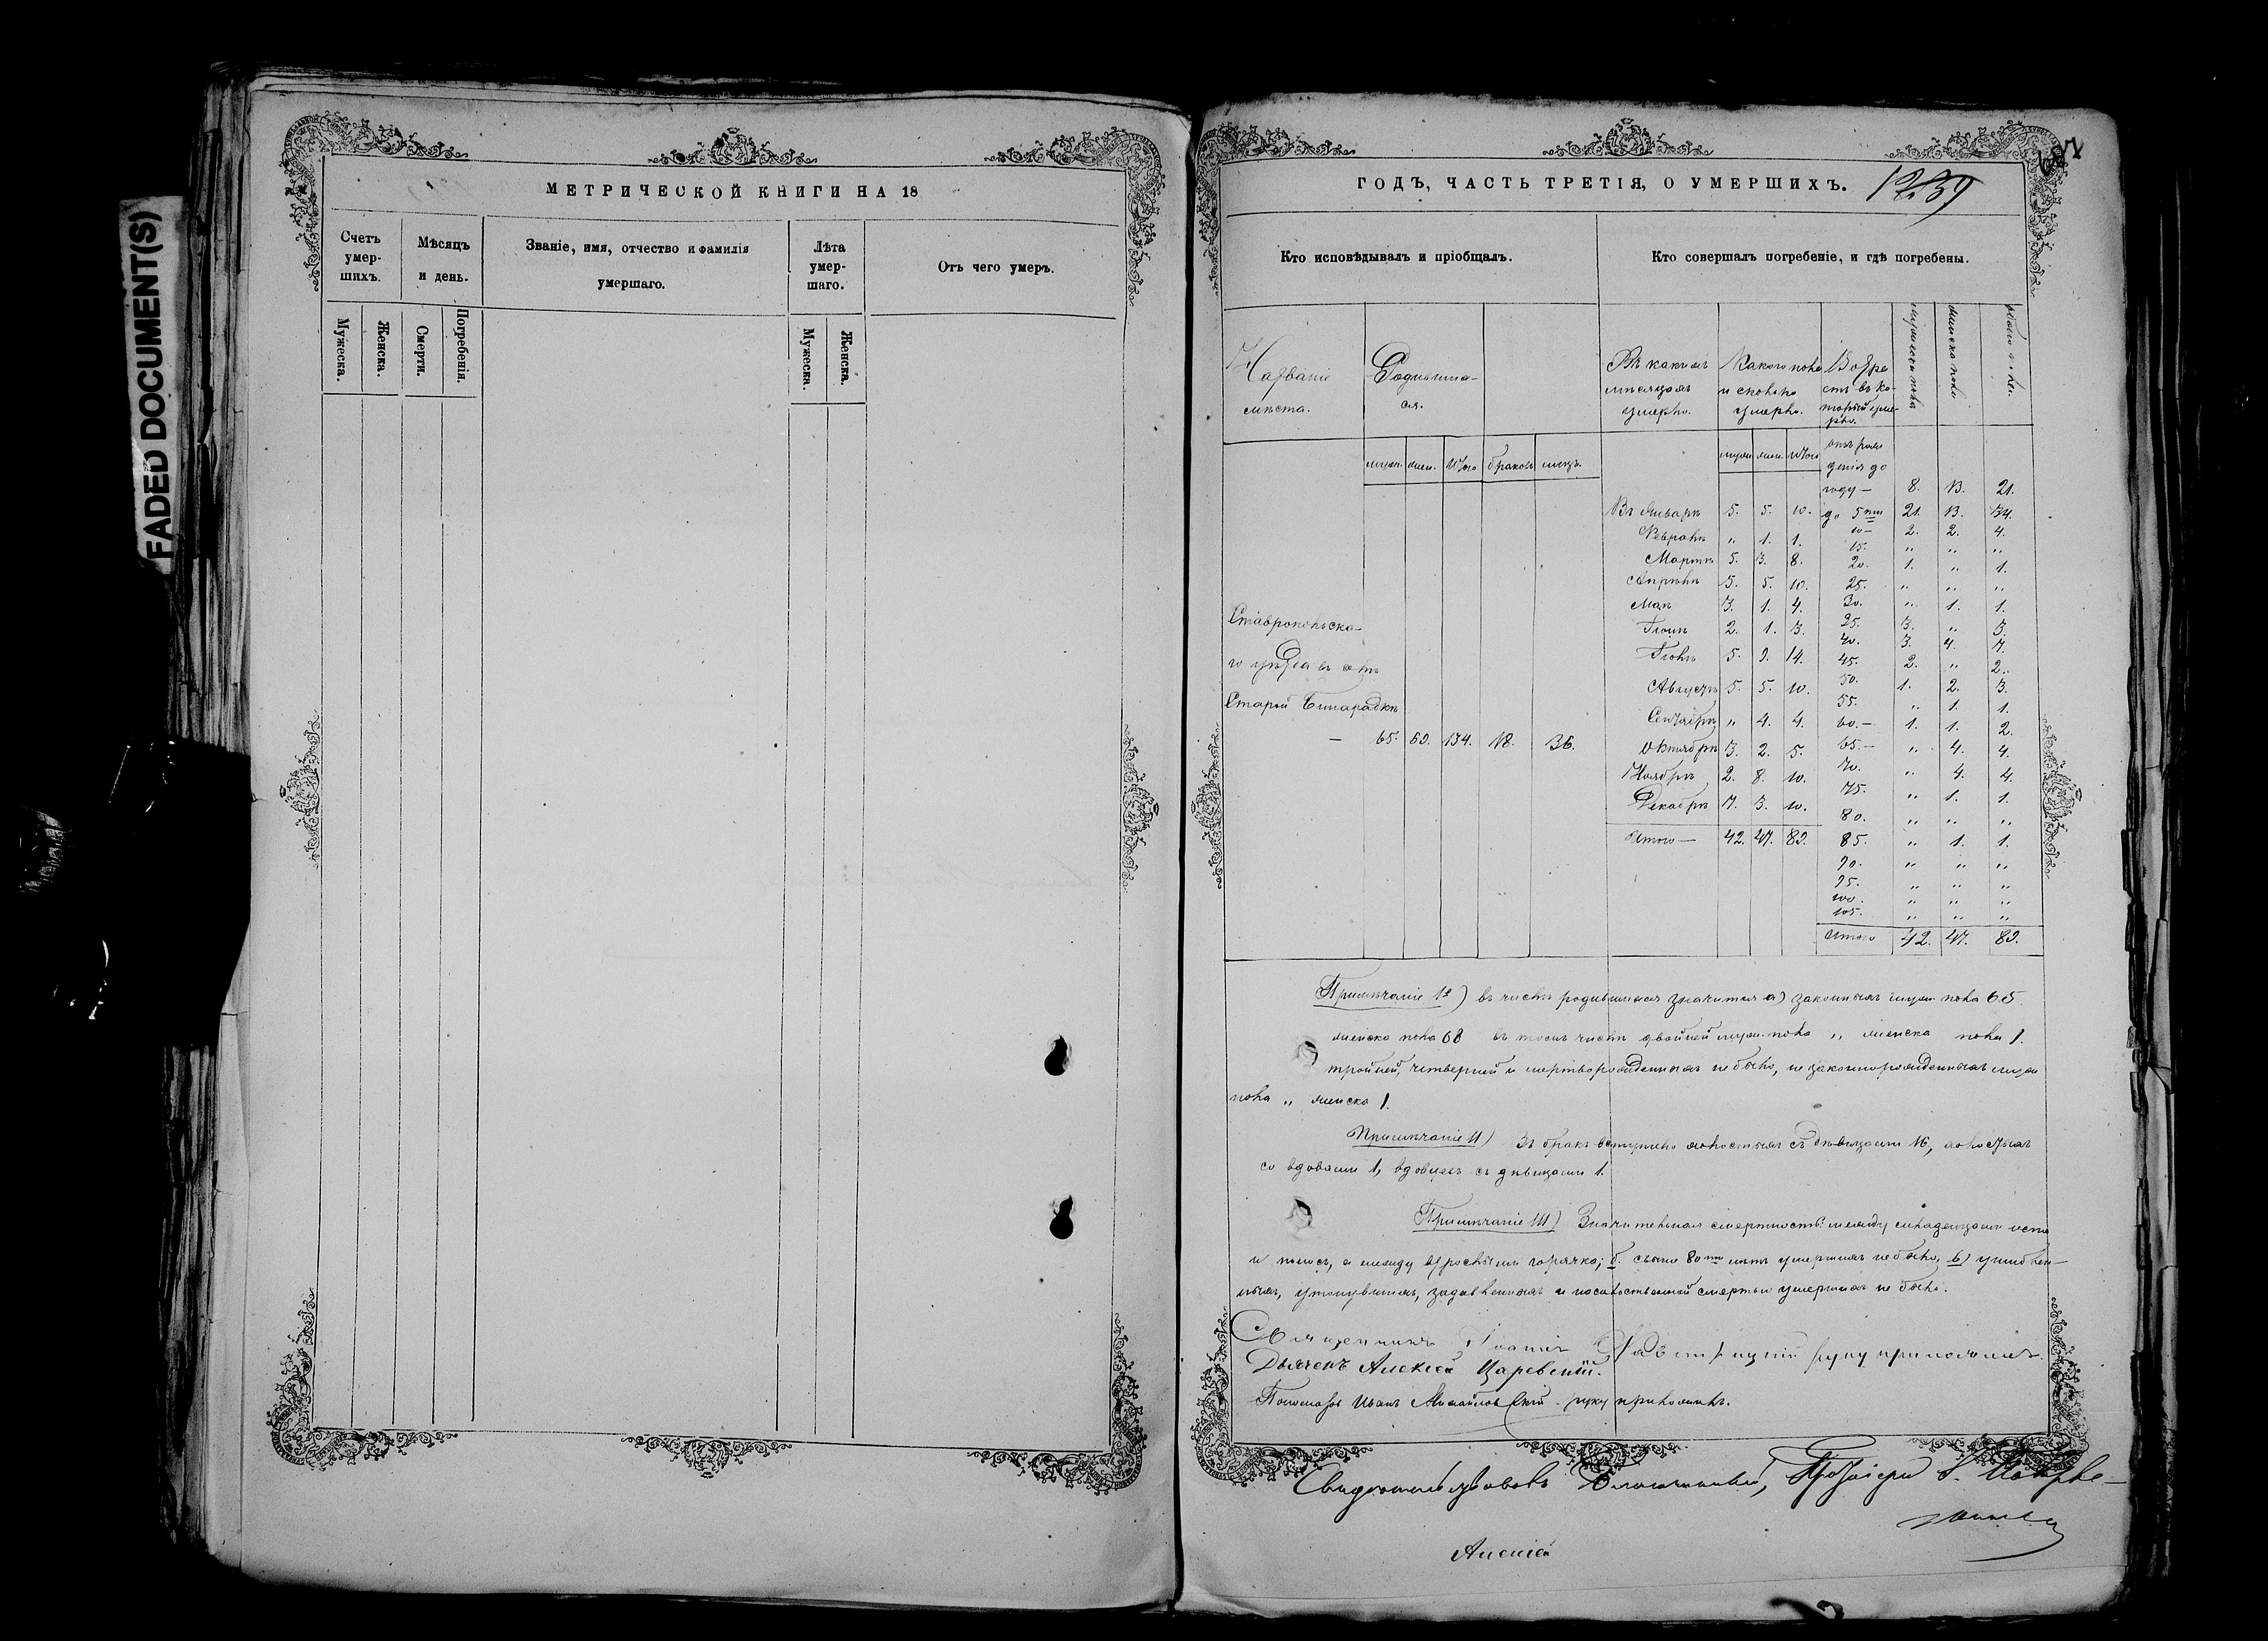 FADED DOCUMENT(S)
МЕТРИЧЕСКОЙ КНИГИ НА 18
Счетъ умер-шихъ.
Мѣсяцъ и день.
Званіе, имя, отчество и фамилія умершаго.
Лѣта умер-шаго.
Отъ чего умеръ.
Мужеска.
Женска.
Смерти.
Погребенія.
Мужеска.
Женска.
ГОДЪ, ЧАСТЬ ТРЕТІЯ, О УМЕРШИХЪ.
Кто исповѣдывалъ и пріобщалъ.
Кто совершалъ погребеніе, и гдѣ погребены.
Названіе мѣста.
Родившиа-ся.
Въ какомъ мѣсяцѣ умерло.
Какого пола и сколько умерло.
Возра-стъ въ ко-торый уме-рло.
мужеска пола
женска пола
обоего пола
муж. жен. Итого браковъ лицъ.
муж. жен. Итого
отъ рож-денія до году — 8. 13. 21.
Въ Январѣ 5. 5. 10. до 5ти 21. 13. 34.
Февралѣ „ 1. 1. 10 — 2. 2. 4.
15. „ „ „
Мартѣ 5. 3. 8. 20. 1. „ 1.
Апрѣлѣ 5. 5. 10. 25. „ „ „
Маѣ 3. 1. 4. 30. „ 1. 1.
Іюнѣ 2. 1. 3. 35. 3. „ 3.
40. 3. 4. 7.
Іюлѣ 5. 9. 14. 45. 2. „ 2.
Августѣ 5. 5. 10. 50. 1. 2. 3.
55. „ 1. 1.
Сентябрѣ „ 4. 4. 60. — 1. 1. 2.
Октябрѣ 3. 2. 5. 65. — „ 4. 4.
Ноябрѣ 2. 8. 10. 70. „ 4. 4.
75. „ 1. 1.
Декабрѣ 7. 3. 10. 80. „ „ „
Итого — 42. 47. 89. 85. „ 1. 1.
90. „ „ „
95. „ „ „
100. „ „ „
105. „ „ „
Итого 42. 47. 89.
Ставропольска-
го уѣзда въ селѣ
Старой Бинарадкѣ
— 65. 69. 134. 18. 36.
Примѣчаніе 1е) въ числѣ родившихся значится а) законныхъ муж. пола 65.
женска пола 68 въ томъ числѣ двойней муж. пола „ женска пола 1.
тройней, четверней и мертворожденныхъ не было, не законнорожденныхъ муж
пола „ женска 1.
Примѣчаніе II) Въ бракъ вступило холостыхъ съ дѣвицами 16, холостыхъ
со вдовами 1, вдовцевъ съ дѣвицами 1.
Примѣчаніе III) Значительная смертность: между младенцами оспа
и поносъ, а между взрослыми горячка; б. свыше 80ти лѣтъ умершихъ не было, в) ушиблен-
ныхъ, утонувшихъ, задавленныхъ и насильственной смертью умершихъ не было.
Священникъ Іоаннъ руку приложилъ.
Дьячекъ Алексѣй Царевскій.
Пономарь Иванъ Михайловскій руку приложилъ.
Свидѣтельствовалъ Благочинный, Протоіерей
Алексѣй